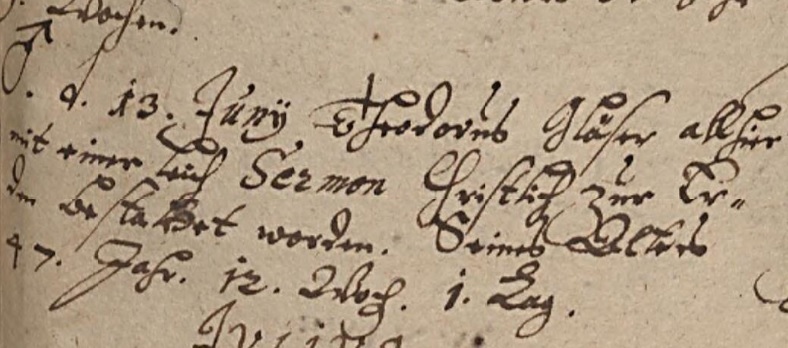 Wochen.
d. 13. Junÿ Theodorus Gläser allhier
mit einer Leich Sermon Christlich zur Er-
den bestattet worden. Seines Alters
47. Jahr. 12. Woch. 1. Tag.